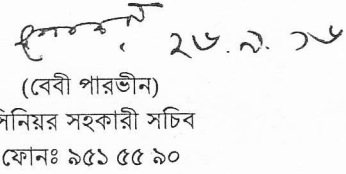 ২৬.৯.১৬
(বেবী পারভীন)
সিনিয়র সহকারী সচিব
ফোনঃ ৯৫১ ৫৫ ৯০